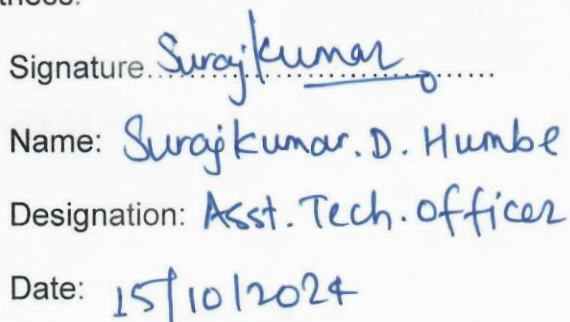 Signature......Surajkumar......
Name: Surajkumar. D. Humbe
Designation: Asst. Tech. Officer
Date: 15/10/2024